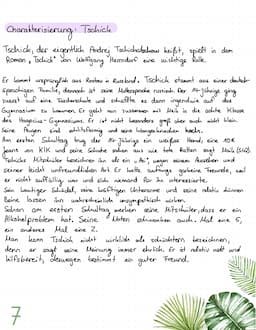 Charakterisierung: Tschick
Tschick, der eigentlich Andrej Tschichatschow heißt, spielt in dem
Roman „Tschick" von Wolfgang Herrndorf eine wichtige Rolle.
Er kommt ursprünglich aus Rostow in Russland. Tschick stammt aus einer deutsch-
sprachigen Familie, dennoch ist seine Muttersprache russisch. Der 14-Jährige ging
zuerst auf eine Förderschule und schaffte es dann irgendwie auf das
Gymnasium zu kommen. Er geht nun zusammen mit Maik in die achte Klasse
des Hagecius-Gymnasiums. Er ist nicht besonders groß aber auch nicht klein.
Seine Augen sind schlitzförmig und seine Wangenknochen hoch.
Am ersten Schultag trug der 14-Jährige ein weißes Hemd, eine 10€
Jeans von KIK und seine Schuhe sahen aus wie tote Ratten sagt Maik
Tschicks Mitschüler bezeichnen ihn als ein wegen seinem Aussehen und
seiner leicht unfreundlichen Art. Er hatte anfangs garkeine Freunde, weil
er nicht auffällig war und sich niemand für ihn interessierte.
Sein kantiger Schädel, seine kräftigen Unterarme und seine relativ dünnen
Beine lassen ihn wahrscheinlich unsympathisch wirken.
Schon am ersten Schultag merken seine Mitschüler, dass er ein
Alkoholproblem hat. Seine Noten schwanken auch. Mal eine 5,
ein anderes Mal eine 2.
Man kann Tschick nicht wirklich als schüchtern bezeichnen,
denn er sagt seine Meinung immer ehrlich. Er ist relativ nett und
hilfsbereit, deswegen bestimmt ein guter Freund.
7